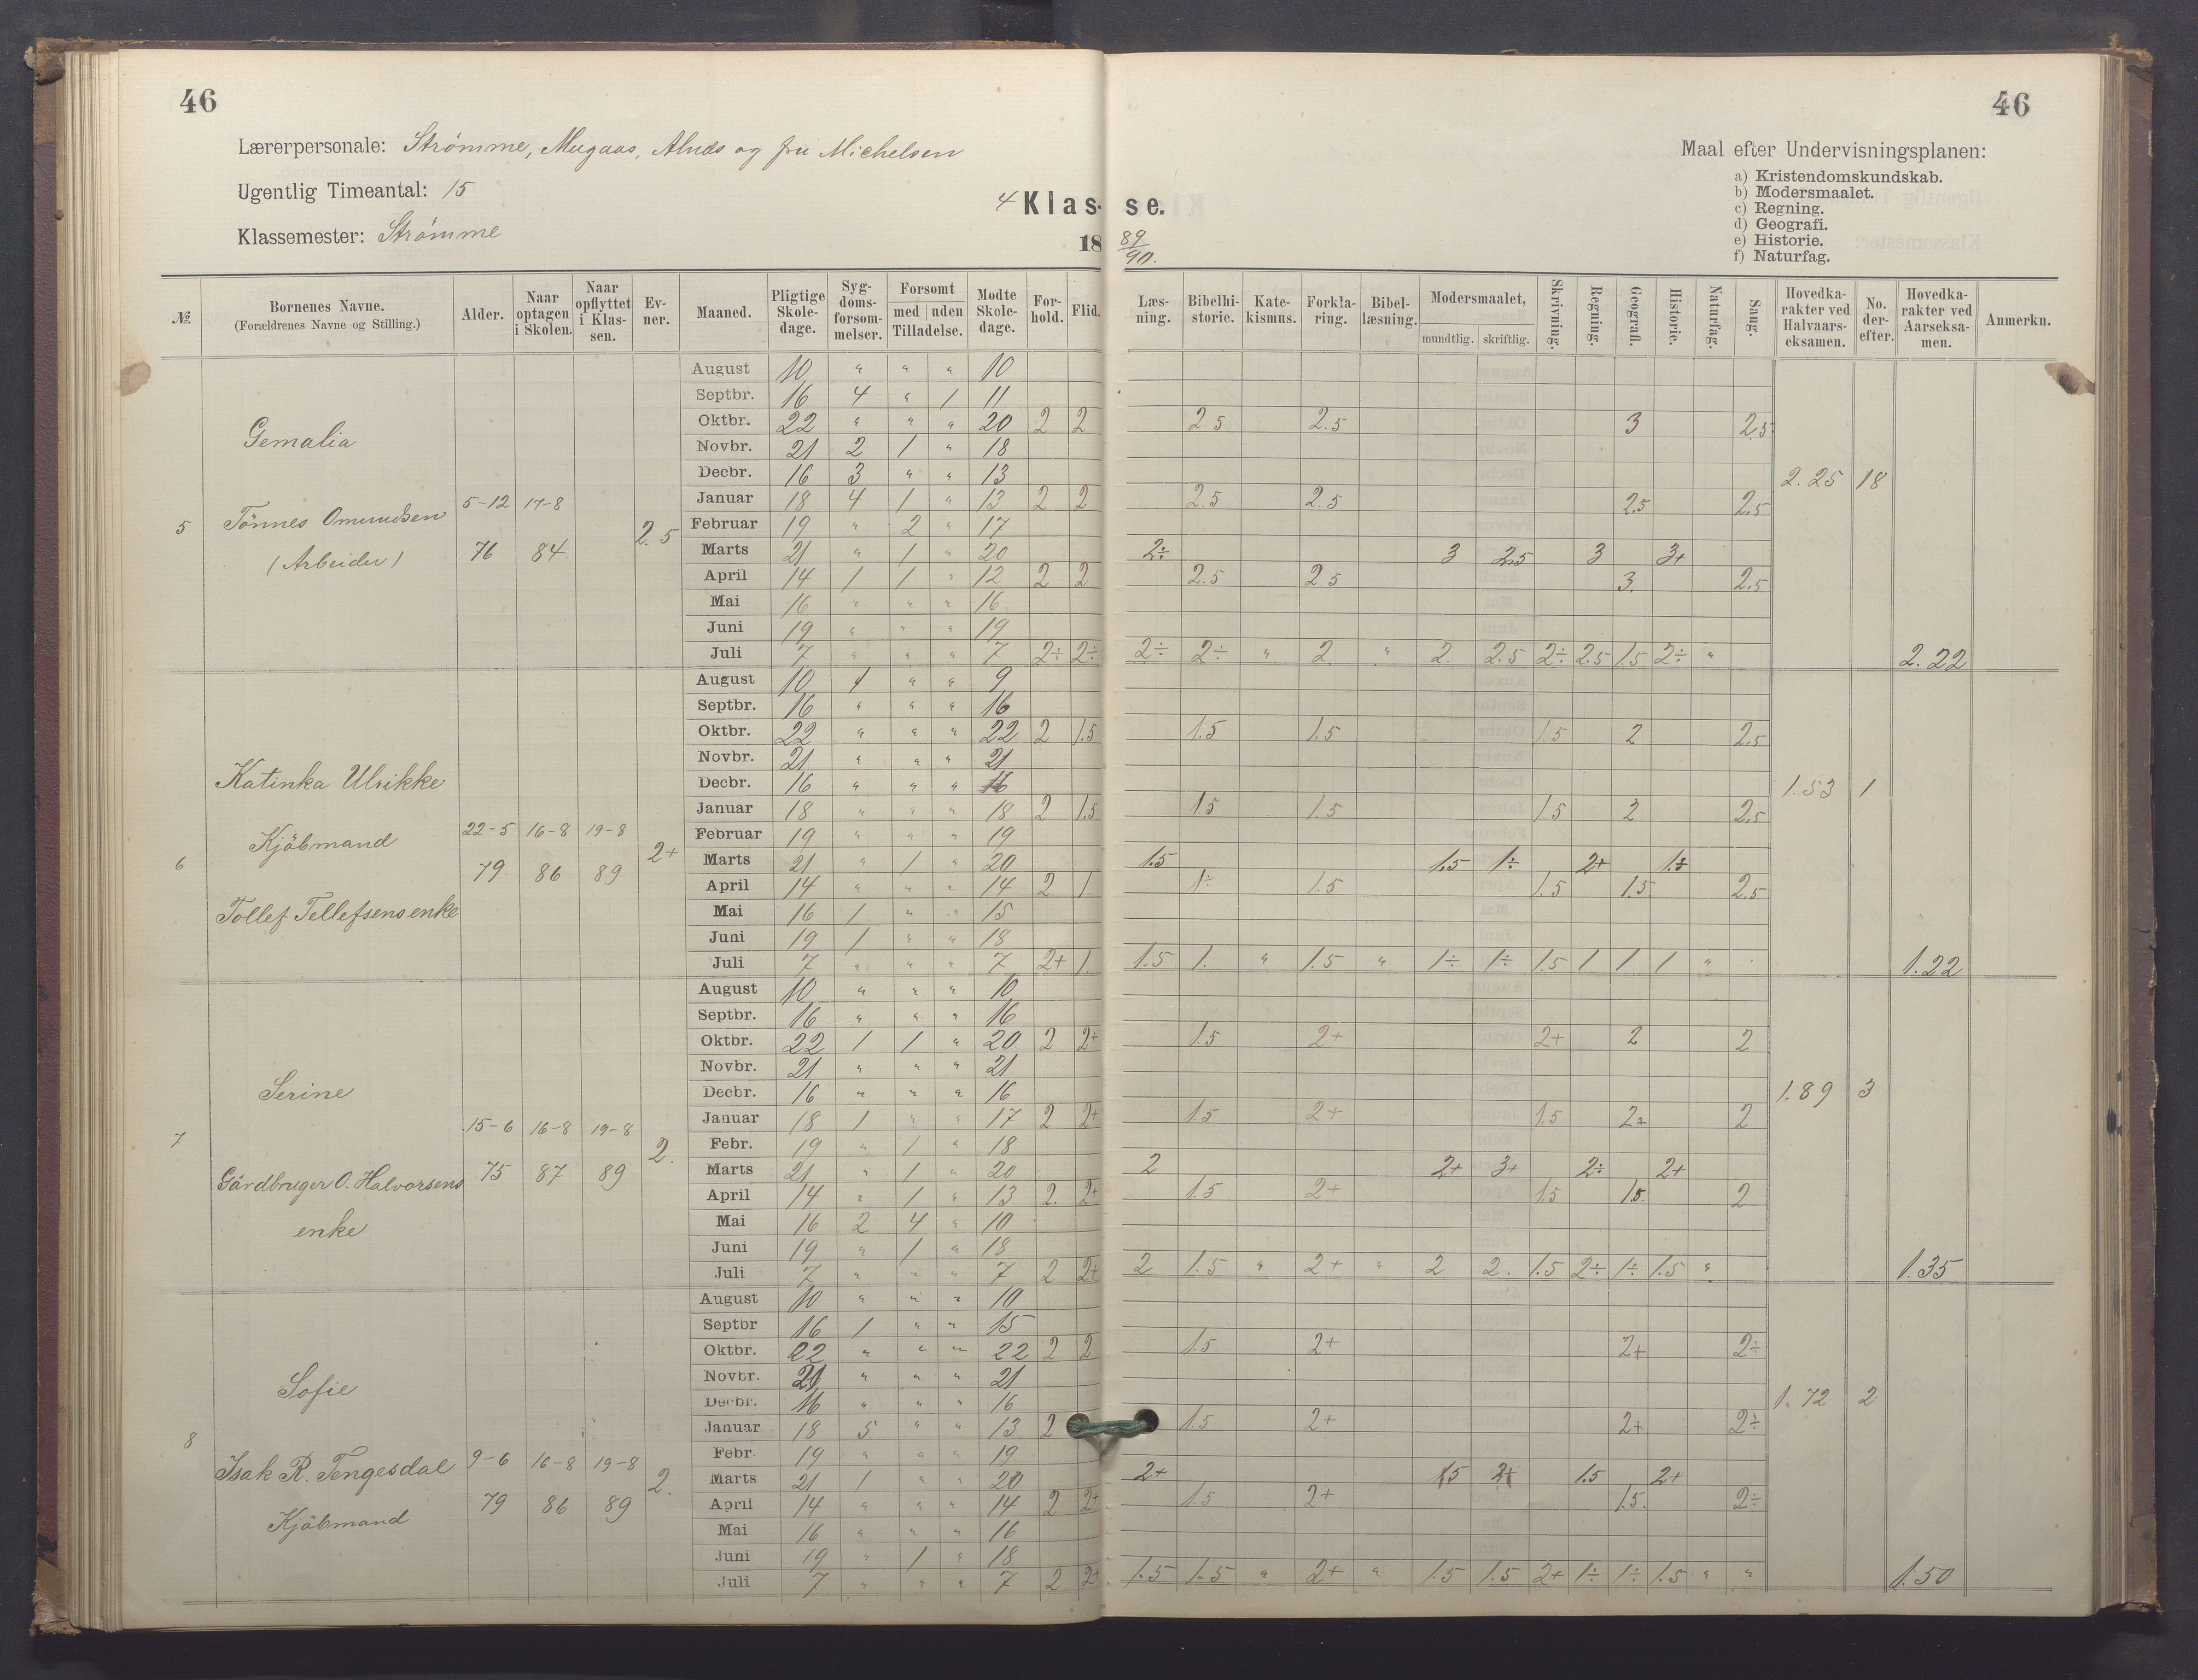 46
46
Lærerpersonale: Strømme, Mugaas, og fru Michelsen
Ugentlig Timeantal: 15
Klassemester: Strømme
4 Klas- se.
18 89/90.
Maal efter Undervisningsplanen:
a) Kristendomskundskab.
b) Modersmaalet.
c) Regning.
d) Geografi.
e) Historie.
f) Naturfag.
№. Børnenes Navne. (Forældrenes Navne og Stilling.) Alder. Naar optagen i Skolen. Naar opflyttet i Klassen. Evner. Maaned. Pligtige Skoledage. Sygdomsforsømmelser. Forsømt med uden Tilladelse. Mødte Skoledage. Forhold. Flid. Læsning. Bibelhistorie. Katekismus. Forklaring. Bibellæsning. Modersmaalet, mundtlig. skriftlig. Skrivning. Regning. Geografi. Historie. Naturfag. Sang. Hovedkarakter ved Halvaarseksamen. No. derefter. Hovedkarakter ved Aarseksamen. Anmerkn.
5 Gemalia
Tönnes Omundsen
(Arbeider)
5-12 76 17-8 84 2.5
August 10 " " " 10
Septbr. 16 4 " 1 11
Oktbr. 22 " " " 20 2 2 2.5 2.5 3 2.5
Novbr. 21 2 1 " 18
Decbr. 16 3 " " 13 2.25 18
Januar 18 4 1 " 13 2 2 2.5 2.5 2.5 2.5
Februar 19 " 2 " 17
Marts 21 " 1 " 20 2÷ 3 2.5 3 3+
April 14 1 1 " 12 2 2 2.5 2.5 3. 2.5
Mai 16 " " " 16
Juni 19 " " " 19
Juli 7 " " " 7 2÷ 2÷ 2÷ 2÷ " 2 " 2. 2.5 2÷ 2.5 1.5 2÷ " 2.22
6 Katinka Ulrikke
Kjöbmand
Tollef Tellefsens enke
22-5 79 16-8 86 19-8 89 2+
August 10 1 " " 9
Septbr. 16 " " " 16
Oktbr. 22 " " " 22 2 1.5 1.5 1.5 1.5 2 2.5
Novbr. 21 " " " 21
Decbr. 16 " " " 16 1.53 1
Januar 18 " " " 18 2 1.5 1.5 1.5 1.5 2 2.5
Februar 19 " " " 19
Marts 21 " 1 " 20 1.5 1.5 1÷ 2+ 1÷
April 14 " " " 14 2 1 1÷ 1.5 1.5 1.5. 2.5
Mai 16 1 " " 15
Juni 19 1 " " 18
Juli 7 " " " 7 2+ 1. 1.5 1. " 1.5 " 1÷ 1÷ 1.5 1 1 1 " 1.22
7 Serine
Gårdbruger O. Halvorsens
enke
15-6 75 16-8 87 19-8 89 2.
August 10 " " " 10
Septbr. 16 " " " 16
Oktbr. 22 1 1 " 20 2 2+ 1.5 2+ 2+ 2 2
Novbr. 21 " " " 21
Decbr. 16 " " " 16 1.89 3
Januar 18 1 " " 17 2 2+ 1.5 2+ 1.5 2+ 2
Febr. 19 " 1 " 18
Marts 21 " 1 " 20 2 2+ 3+ 2÷ 2+
April 14 " 1 " 13 2. 2+ 1.5 2+ 1.5 1.5. 2
Mai 16 2 4 " 10
Juni 19 " 1 " 18
Juli 7 " " " 7 2 2+ 2 1.5 " 2+ " 2 2. 1.5 2÷ 1÷ 1.5 " 1.35
8 Sofie
Isak R. Tengesdal
Kjöbmand
9-6 79 16-8 86 19-8 89 2.
August 10 " " " 10
Septbr 16 1 " " 15
Oktbr. 22 " " " 22 2 2 1.5 2+ 2+ 2÷
Novbr. 21 " " " 21
Decbr. 16 " " " 16 1.72 2
Januar 18 5 " " 13 2 1.5 2+ 2+ 2÷
Febr. 19 " " " 19
Marts 21 1 " " 20 2+ 1.5 1.5 2+
April 14 " " " 14 2 2+ 1.5 2+ 1.5. 2÷
Mai 16 " " " 16
Juni 19 " 1 " 18
Juli 7 " " " 7 2 2+ 1.5 1.5 " 2+ " 1.5 1.5 2+ 1÷ 1÷ 1.5 " " 1.50